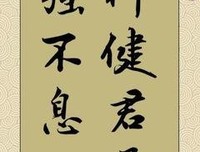 行健君子
强不息